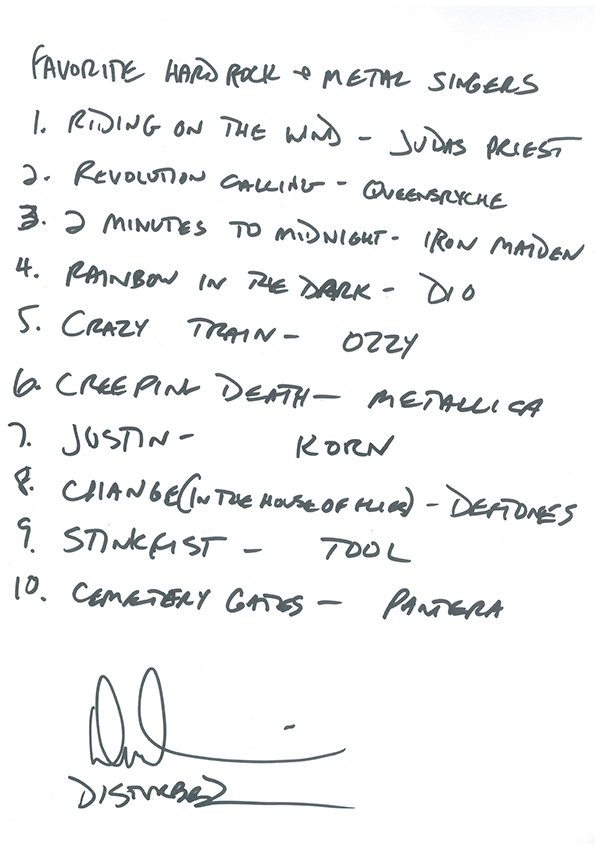 FAVORITE HARD ROCK + METAL SINGERS
1. RIDING ON THE WIND - JUDAS PRIEST
2. REVOLUTION CALLING - QUEENSRYCHE
3. 2 MINUTES TO MIDNIGHT - IRON MAIDEN
4. RAINBOW IN THE DARK - DIO
5. CRAZY TRAIN - OZZY
6. CREEPING DEATH - METALLICA
7. JUSTIN - KORN
8. CHANGE (IN THE HOUSE OF FLIES) - DEFTONES
9. STINKFIST - TOOL
10. CEMETERY GATES - PANTERA
DISTURBED